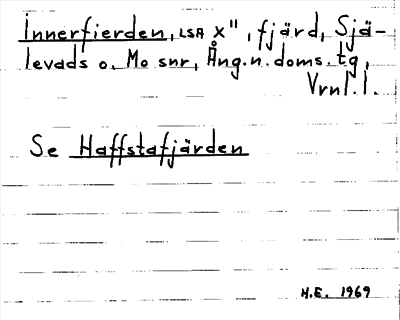 Innerfierden, LSA X", fjärd, Själ-
levads o. Mo snr, Ång.n.doms.tg,
Vrnl.l.
Se Haffstafjärden
H.E. 1969